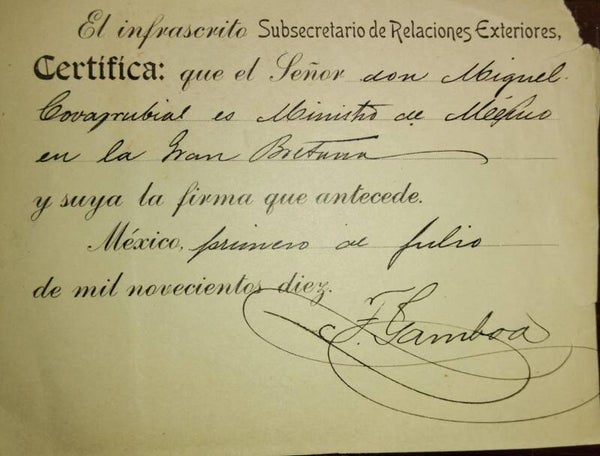 El infrascrito Subsecretario de Relaciones Exteriores,
Certifica: que el Señor don Miguel
Covarrubias es Ministro de México
en la Gran Bretaña
y suya la firma que antecede.
México, primero de julio
de mil novecientos diez.
F. Gamboa